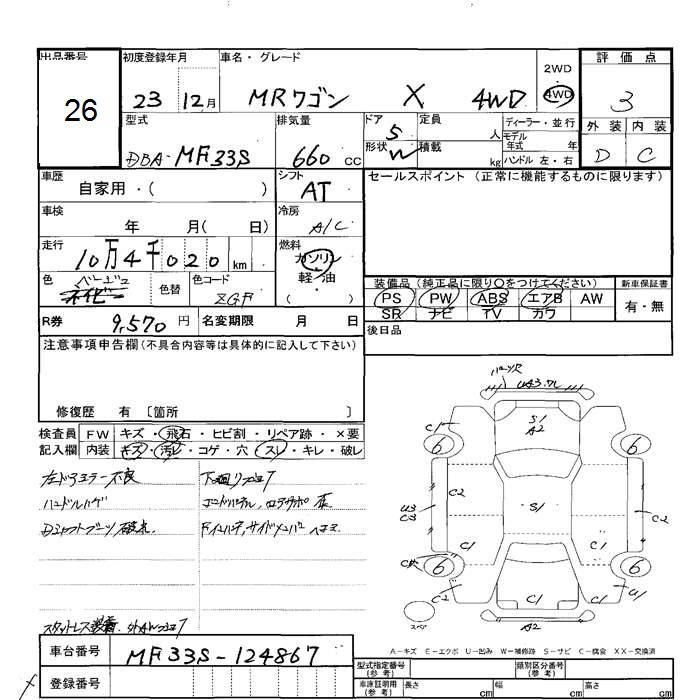 出品番号 26
初度登録年月 車名・グレード 2WD 評価点
23 12月 MRワゴン X 4WD 4WD 3
型式 排気量 ドア 定員 人 ディーラー・並行 外装 内装
DBA-MF33S 660 CC 5 形状 W 積載 kg モデル年式 年 ハンドル 左・右 D C
車歴 自家用・( ) シフト AT セールスポイント (正常に機能するものに限ります)
車検 年 月( 日) 冷房 A/C
走行 10万4千020 km 燃料 ガソリン 軽・油 ( )
色 ベージュ ネイビー 色替 色コード ZGF
装備品 (純正品に限り○をつけてください) 新車保証書
PS PW ABS エアB AW 有・無
SR ナビ TV カワ
R券 9,570 円 名変期限 月 日 後日品
注意事項申告欄 (不具合内容等は具体的に記入して下さい)
修復歴 有 〔箇所 〕
検査員 FW キズ・飛石・ヒビ割・リペア跡・×要
記入欄 内装 キズ・汚れ・コゲ・穴・スレ・キレ・破レ
左ドアミラー不良
ハンドルハゲ
Dシャフトブーツ破れ
下廻りサビ
スタットレス装着
U3
C3
C2
S1
A2
S1
C1
C1
C2
6
6
6
6
C2
C1
C1
U1
A2
スペア
A－キズ E－エクボ U－凹み W－補修跡 S－サビ C－腐食 XX－交換済
車台番号 MF33S-124867
登録番号
型式指定番号 (参考) 類別区分番号 (参考)
車庫証明用 (参考) 長さ cm 幅 cm 高さ cm